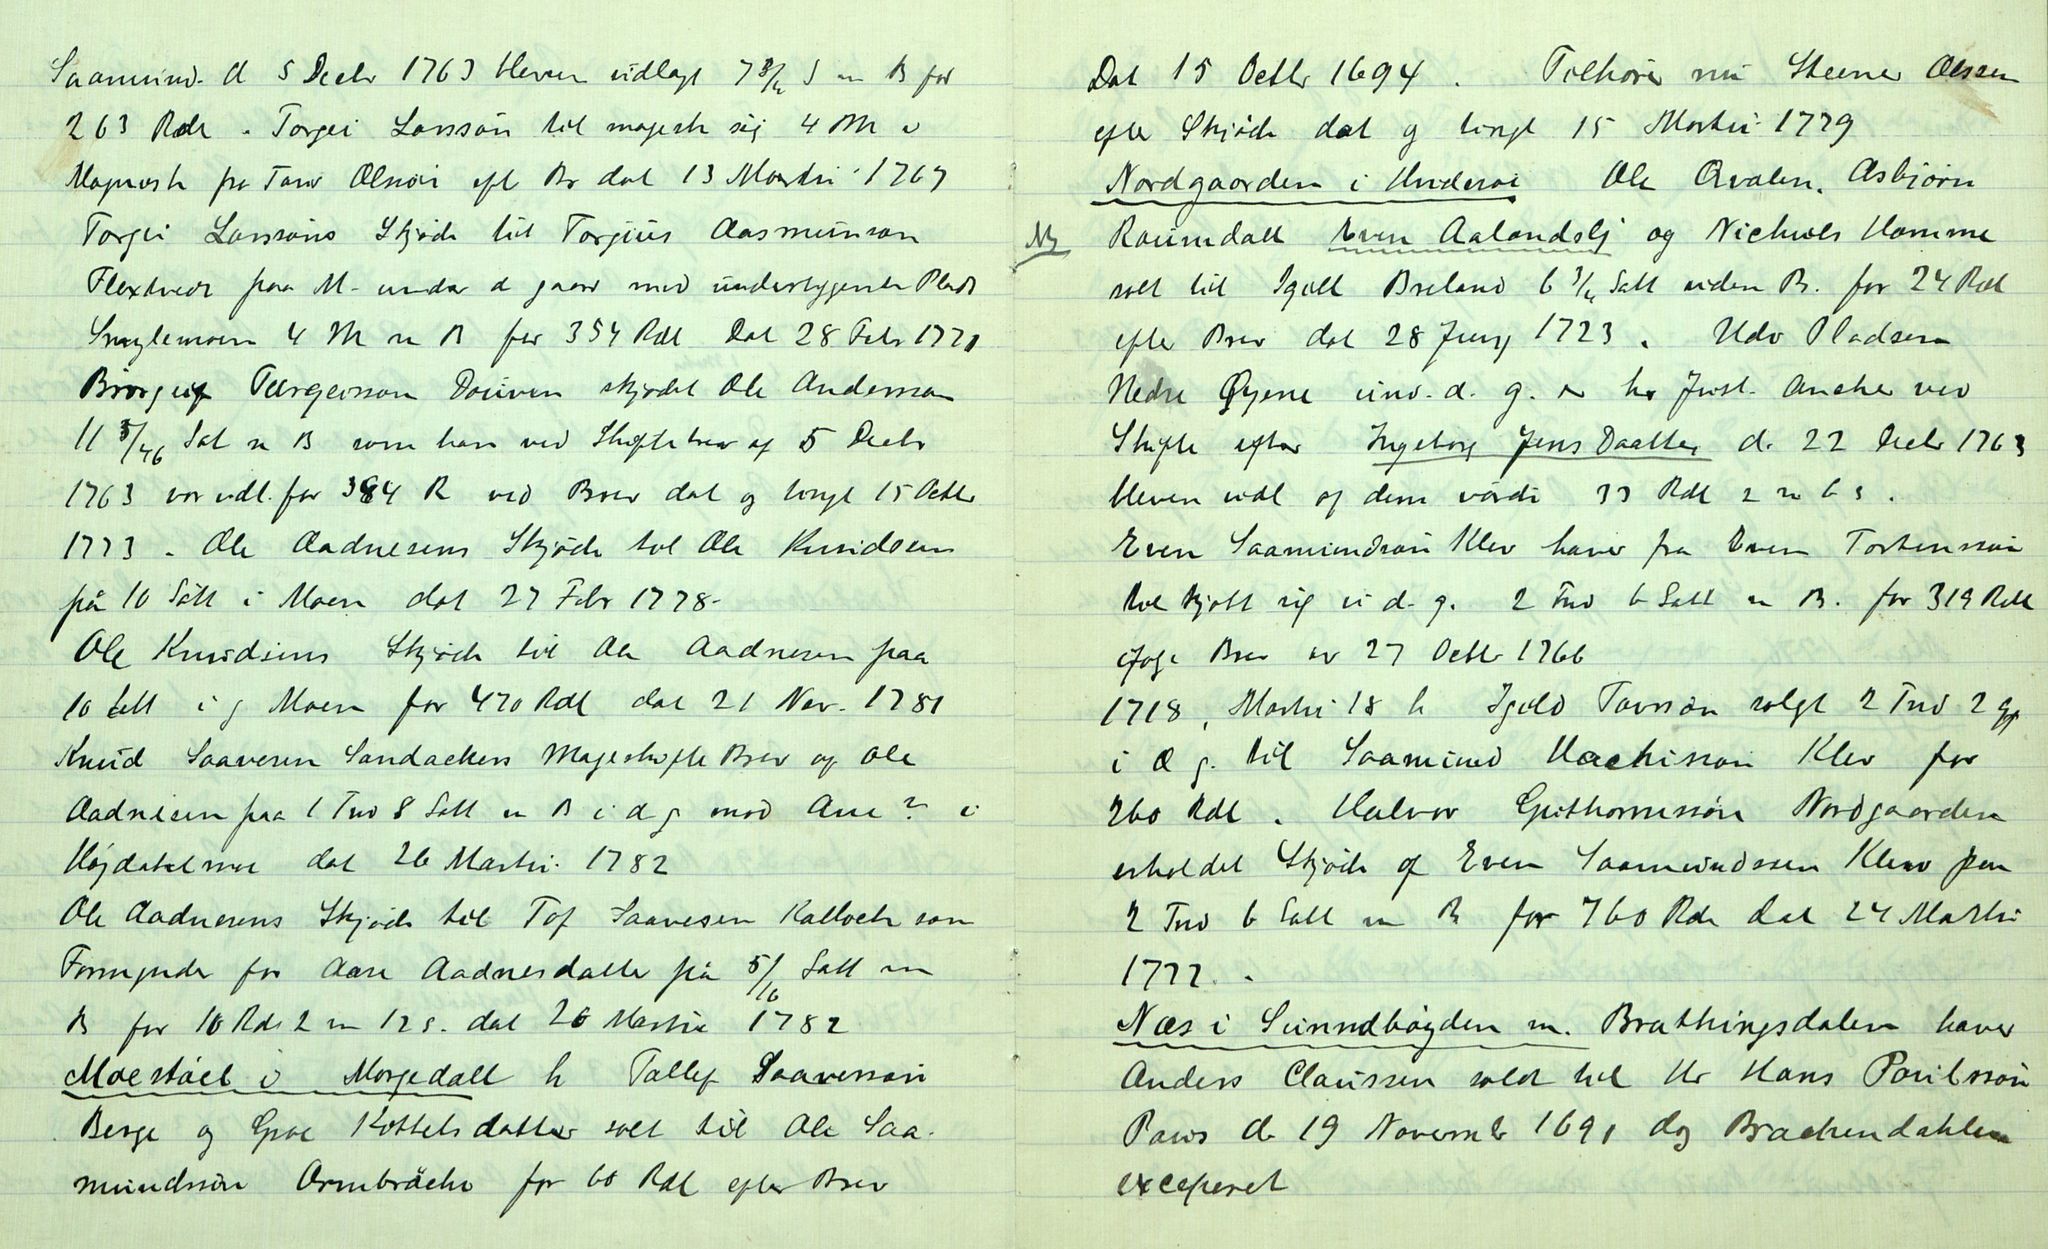 Saamund. d 5 Decbr 1763 bleven udlagt 7 3/4 S m B for
263 Rdl. Torgei Larssøn til mageskt sig 4 M i
fra Tarv Olssøn eft Br dat 13 Martii 1767
Torgei Larssøns Skjøde til Torgius Aasmunson
Flextvedt paa M- under d gaard med underlyggende Plads
Smylemoen 4 M m B for 354 Rdl Dat 28 Febr 1771
Targeirson Douven skjødet Ole Anderson
11 3/46 Sat m B som han ved Skiftebrev af 5 Decbr
1763 var udl. for 384 R ved Brev dat og tingl 15 Octbr
1773. Ole Aadnesens Skjøde til Ole Knudsen
på 10 Sått i Moen dat 27 Febr 1778.
Ole Knudsens Skjøde til Ole Aadnesen paa
10 Sett i g Moen for 470 Rdl dat 21 Nov. 1781
Knud Saavesen Sandackers Mageskifte Brev og Ole
Aadnesen paa 1 Tnd 8 Sått m B i d g mod Aue? i
Højdalsmoe dat 26 Martii. 1782
Ole Aadnesens Skjøde til Tof Saavesen Kalloch som
Formynder for Aase Aadnesdatter på 5/16 Satt m
B for 10 Rdl 2 m 12 s. dat 26 Martii 1782
Moestøel i Morgedall h Tallef Saavessøn
Berge og Groe Kottelsdatter solt til Ole Saa-
mundssøn Armbröche for 60 Rdl efter Brev
Dat 15 Octbr 1694. Tilhører nu Steener Olssen
efter Skjøde dat og tingl 15 Martii 1779
Nordgaarden i Ole Qvalen. Asbjørn
Nz Roumdall Even Aalandslj og Nichuls Homme
solt til Igell Breland 6 3/4 Satt uden B. for 24 Rdl
efter Brev dat 28 Juny 1723. Udv Pladsen
Nedre Øyene und. d. g. er hr Just. Ancher ved
Skifte efter Ingeborg JensDaatter d. 22 Decbr 1763
bleven udl af dem værdi 33 Rdl 2 m 6 s.
Even Saamundsøn Klev haver fra Even Tortenssøn
tilskjøtt sig i d. g. 2 Tnd 6 Satt m B. for 319 Rdl
ifølge Brev av 27 Octbr 1766
1718, Martii 18 h Igeld Tarvsøn solgt 2 Tnd 2 gp
i d g. til Saamund Hachisson Klev for
260 Rdl. Halvor Guthormssøn Nordgaarden
erholdet Skjøde af Even Saamundssen Klev paa
2 Tnd 6 Satt m B for 760 Rdl dat 24 Martii
1772.
Næs i Sunndbögden m. Brathingsdalen haver
Anders Claussen soldt til Hr Hans Poulssøn
Paus d. 19 Novembr 1691 dog Brackendahlen
exceperet